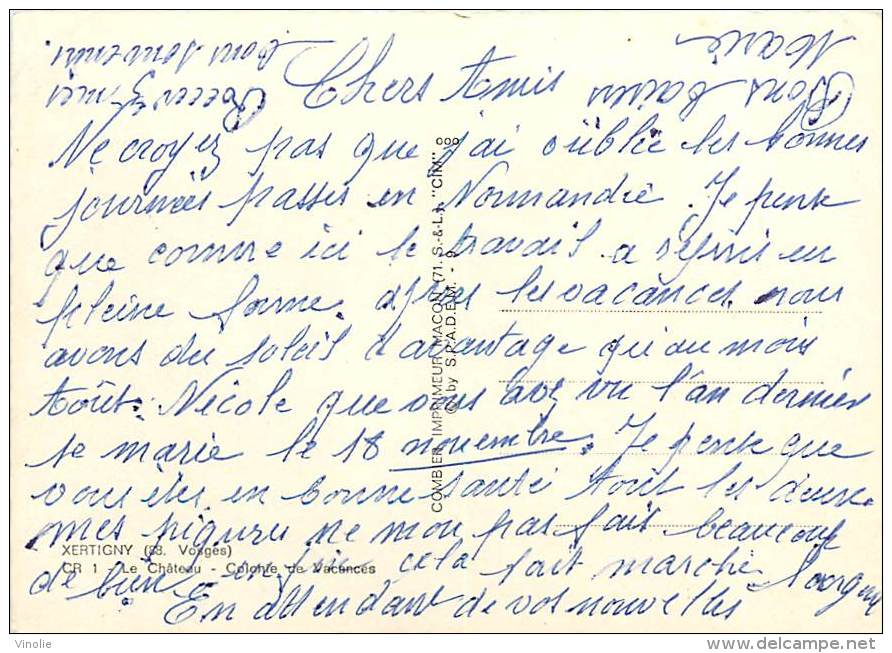 Chers Amis
Ne croyez pas que j'ai oublié les bonnes
journées passés en Normandie. Je pense
que comme ici le travail a repris en
pleine forme. après les vacances. nous
avons du soleil d'avantage qu'au mois
Août. Nicole que vous avez vu l'an dernier
se marie le 18 novembre. Je pense que
vous êtes en bonne santé tout les deux
mes piqûru ne mon pas fait beaucoup
de bien enfin cela fait marché l'argent
En attendant de vos nouvelles
Recevez
bons souvenirs.
Bons baisers
Marie
COMBIER IMPRIMEUR MACON (71. S.-&-L.) "CIM"
© by S.P.A.D.E.M. - 9
XERTIGNY (88. Vosges)
CR 1 - Le Château - Colonie de Vacances
Vinolie
www.delcampe.net